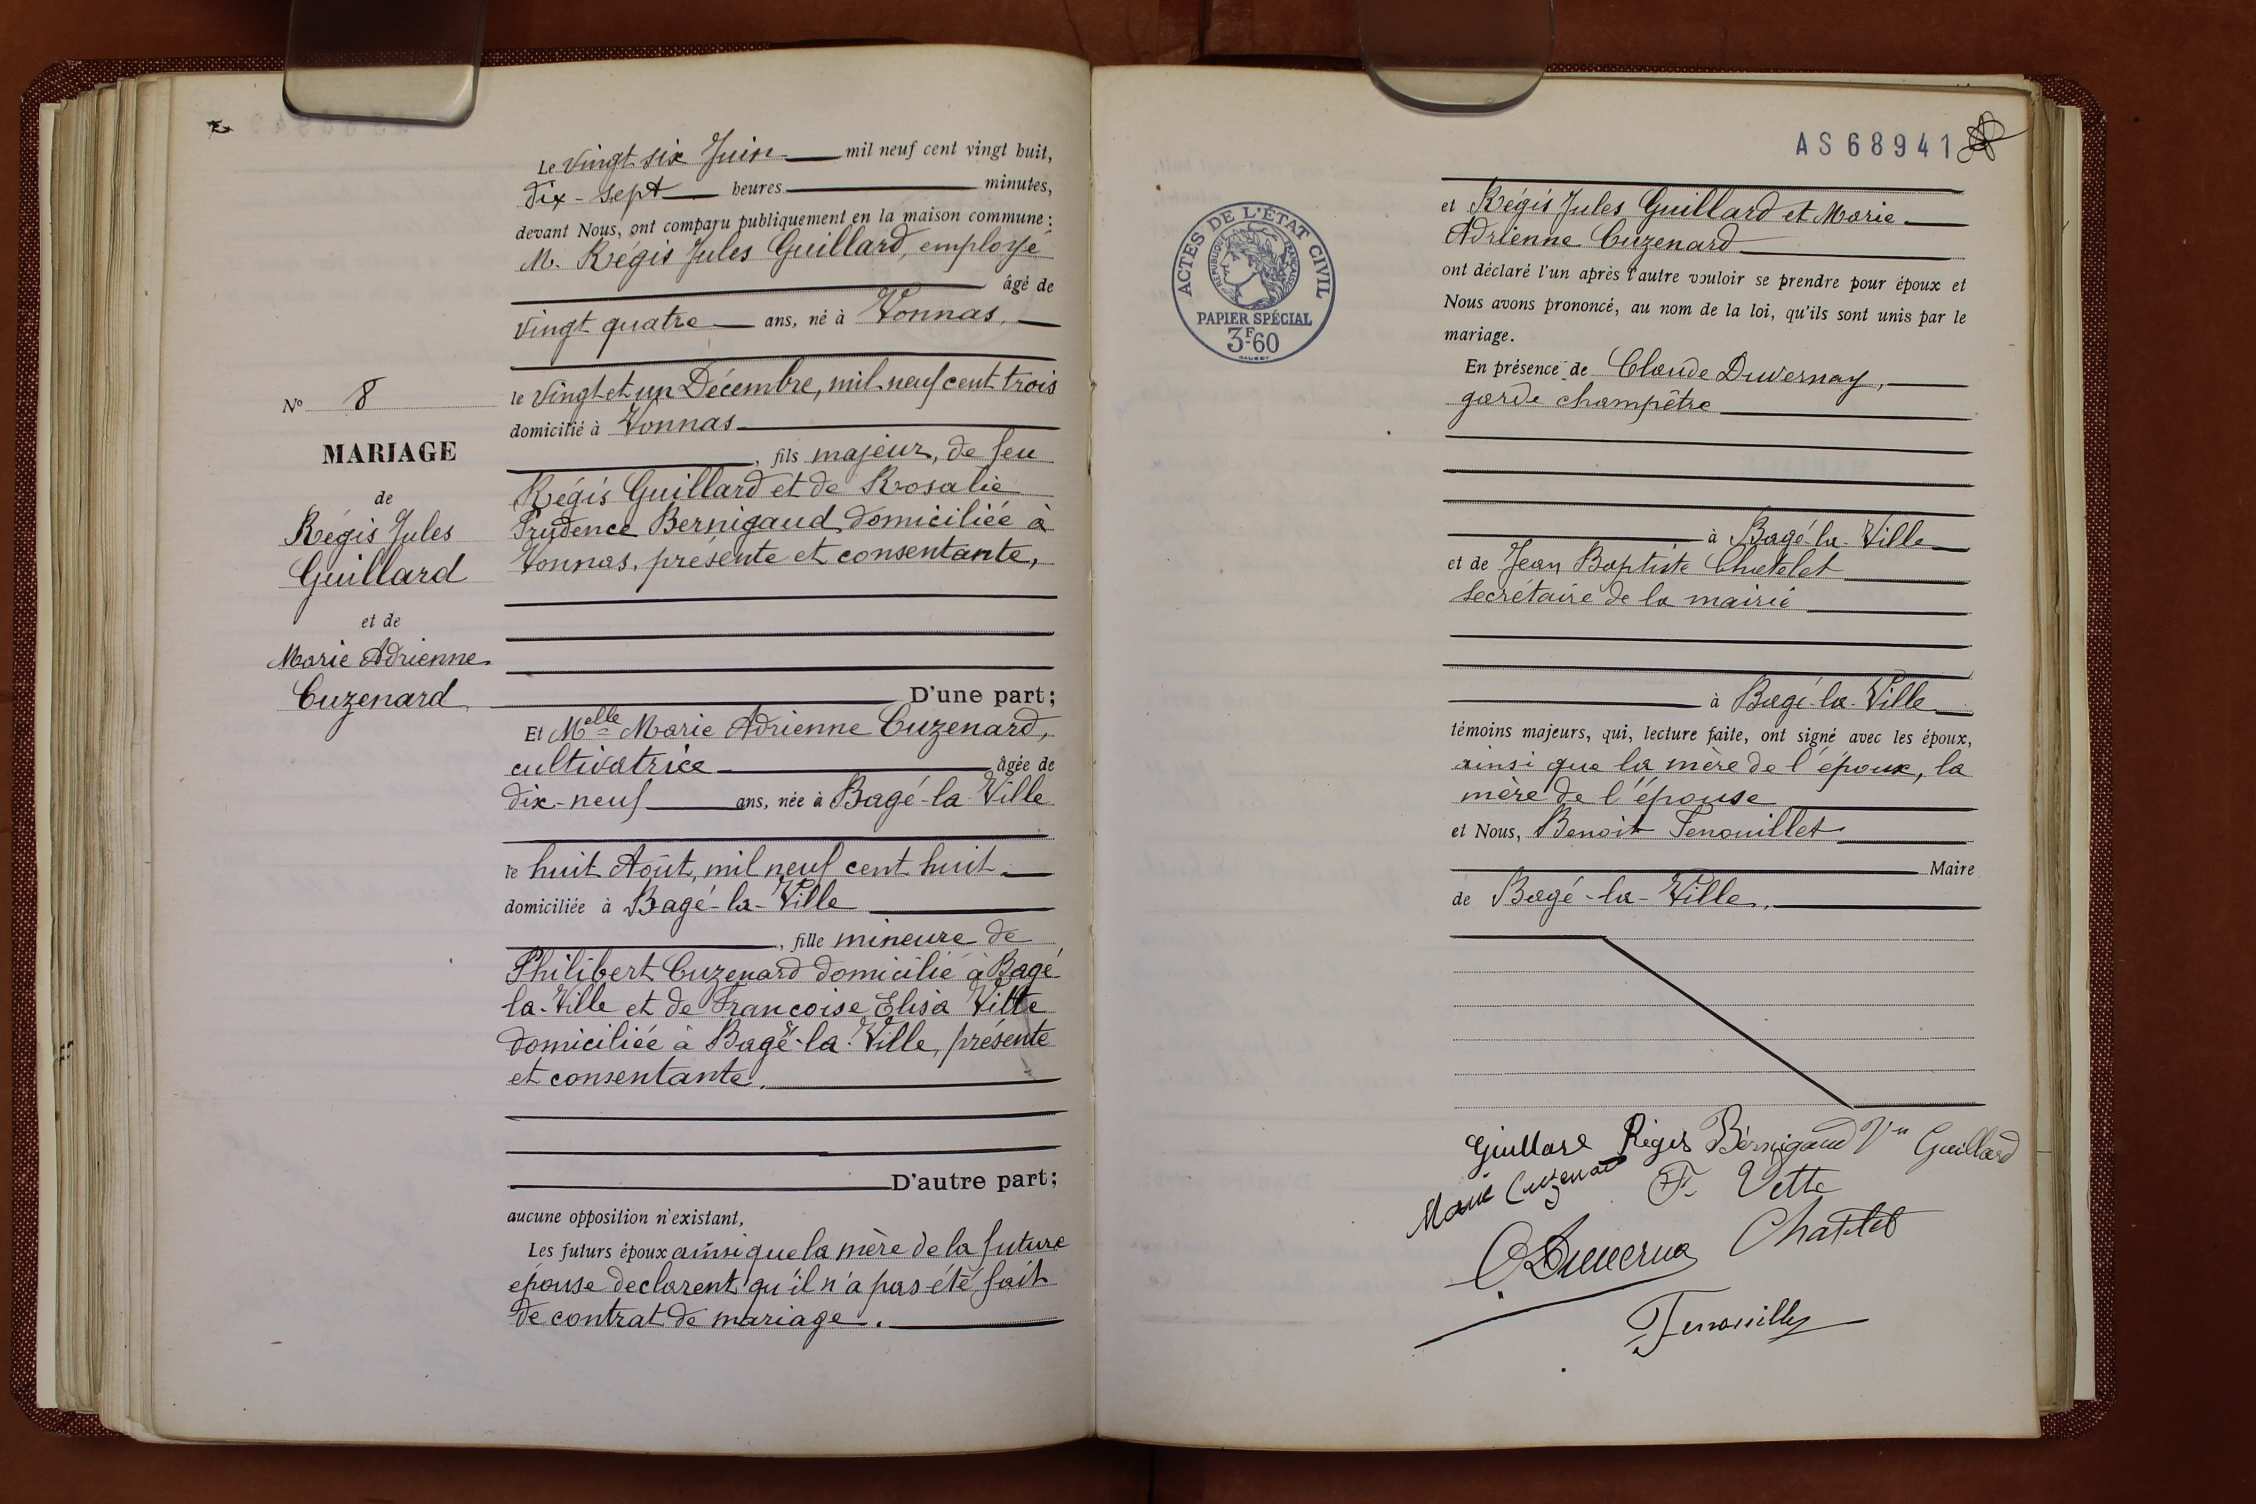 Le vingt six Juin mil neuf cent vingt huit,
dix-sept heures minutes,
devant Nous, ont comparu publiquement en la maison commune :
M. Régis Jules Guillard, employé
âgé de
vingt quatre ans, né à Vonnas,
le vingt et un Décembre, mil neuf cent trois
domicilié à Vonnas
, fils majeur, de feu
Régis Guillard et de Rosalie
Prudence Bernigaud domiciliée à
Vonnas, présente et consentante,
D'une part ;
No 8
MARIAGE
de
Régis Jules
Guillard
et de
Marie Adrienne
Cuzenard
Et Melle Marie Adrienne Cuzenard,
cultivatrice âgée de
dix-neuf ans, née à Bagé-la-Ville
le huit Août, mil neuf cent huit
domiciliée à Bagé-la-Ville
, fille mineure de
Philibert Cuzenard domicilié à Bagé
la-Ville et de Françoise Elisa Vitte
domiciliée à Bagé-la-Ville, présente
et consentante.
D'autre part ;
aucune opposition n'existant,
Les futurs époux ainsi que la mère de la future
épouse declarent qu'il n'a pas été fait
de contrat de mariage.
AS68941
ACTES DE L'ÉTAT CIVIL
RÉPUBLIQUE FRANÇAISE
PAPIER SPÉCIAL
3F.60
et Régis Jules Guillard et Marie
Adrienne Cuzenard
ont déclaré l'un après l'autre vouloir se prendre pour époux et
Nous avons prononcé, au nom de la loi, qu'ils sont unis par le
mariage.
En présence de Claude Duvernay,
garde champêtre
à Bagé-la-Ville
et de Jean Baptiste Chatelet
secrétaire de la mairie
à Bagé-la-Ville
témoins majeurs, qui, lecture faite, ont signé avec les époux,
ainsi que la mère de l'époux, la
mère de l'épouse
et Nous, Benoit Fenouillet
Maire
de Bagé-la-Ville.
Guillard Régis Bernigaud Vve Guillard
Marie Cuzenard F. Vitte
C Duverna Chatelet